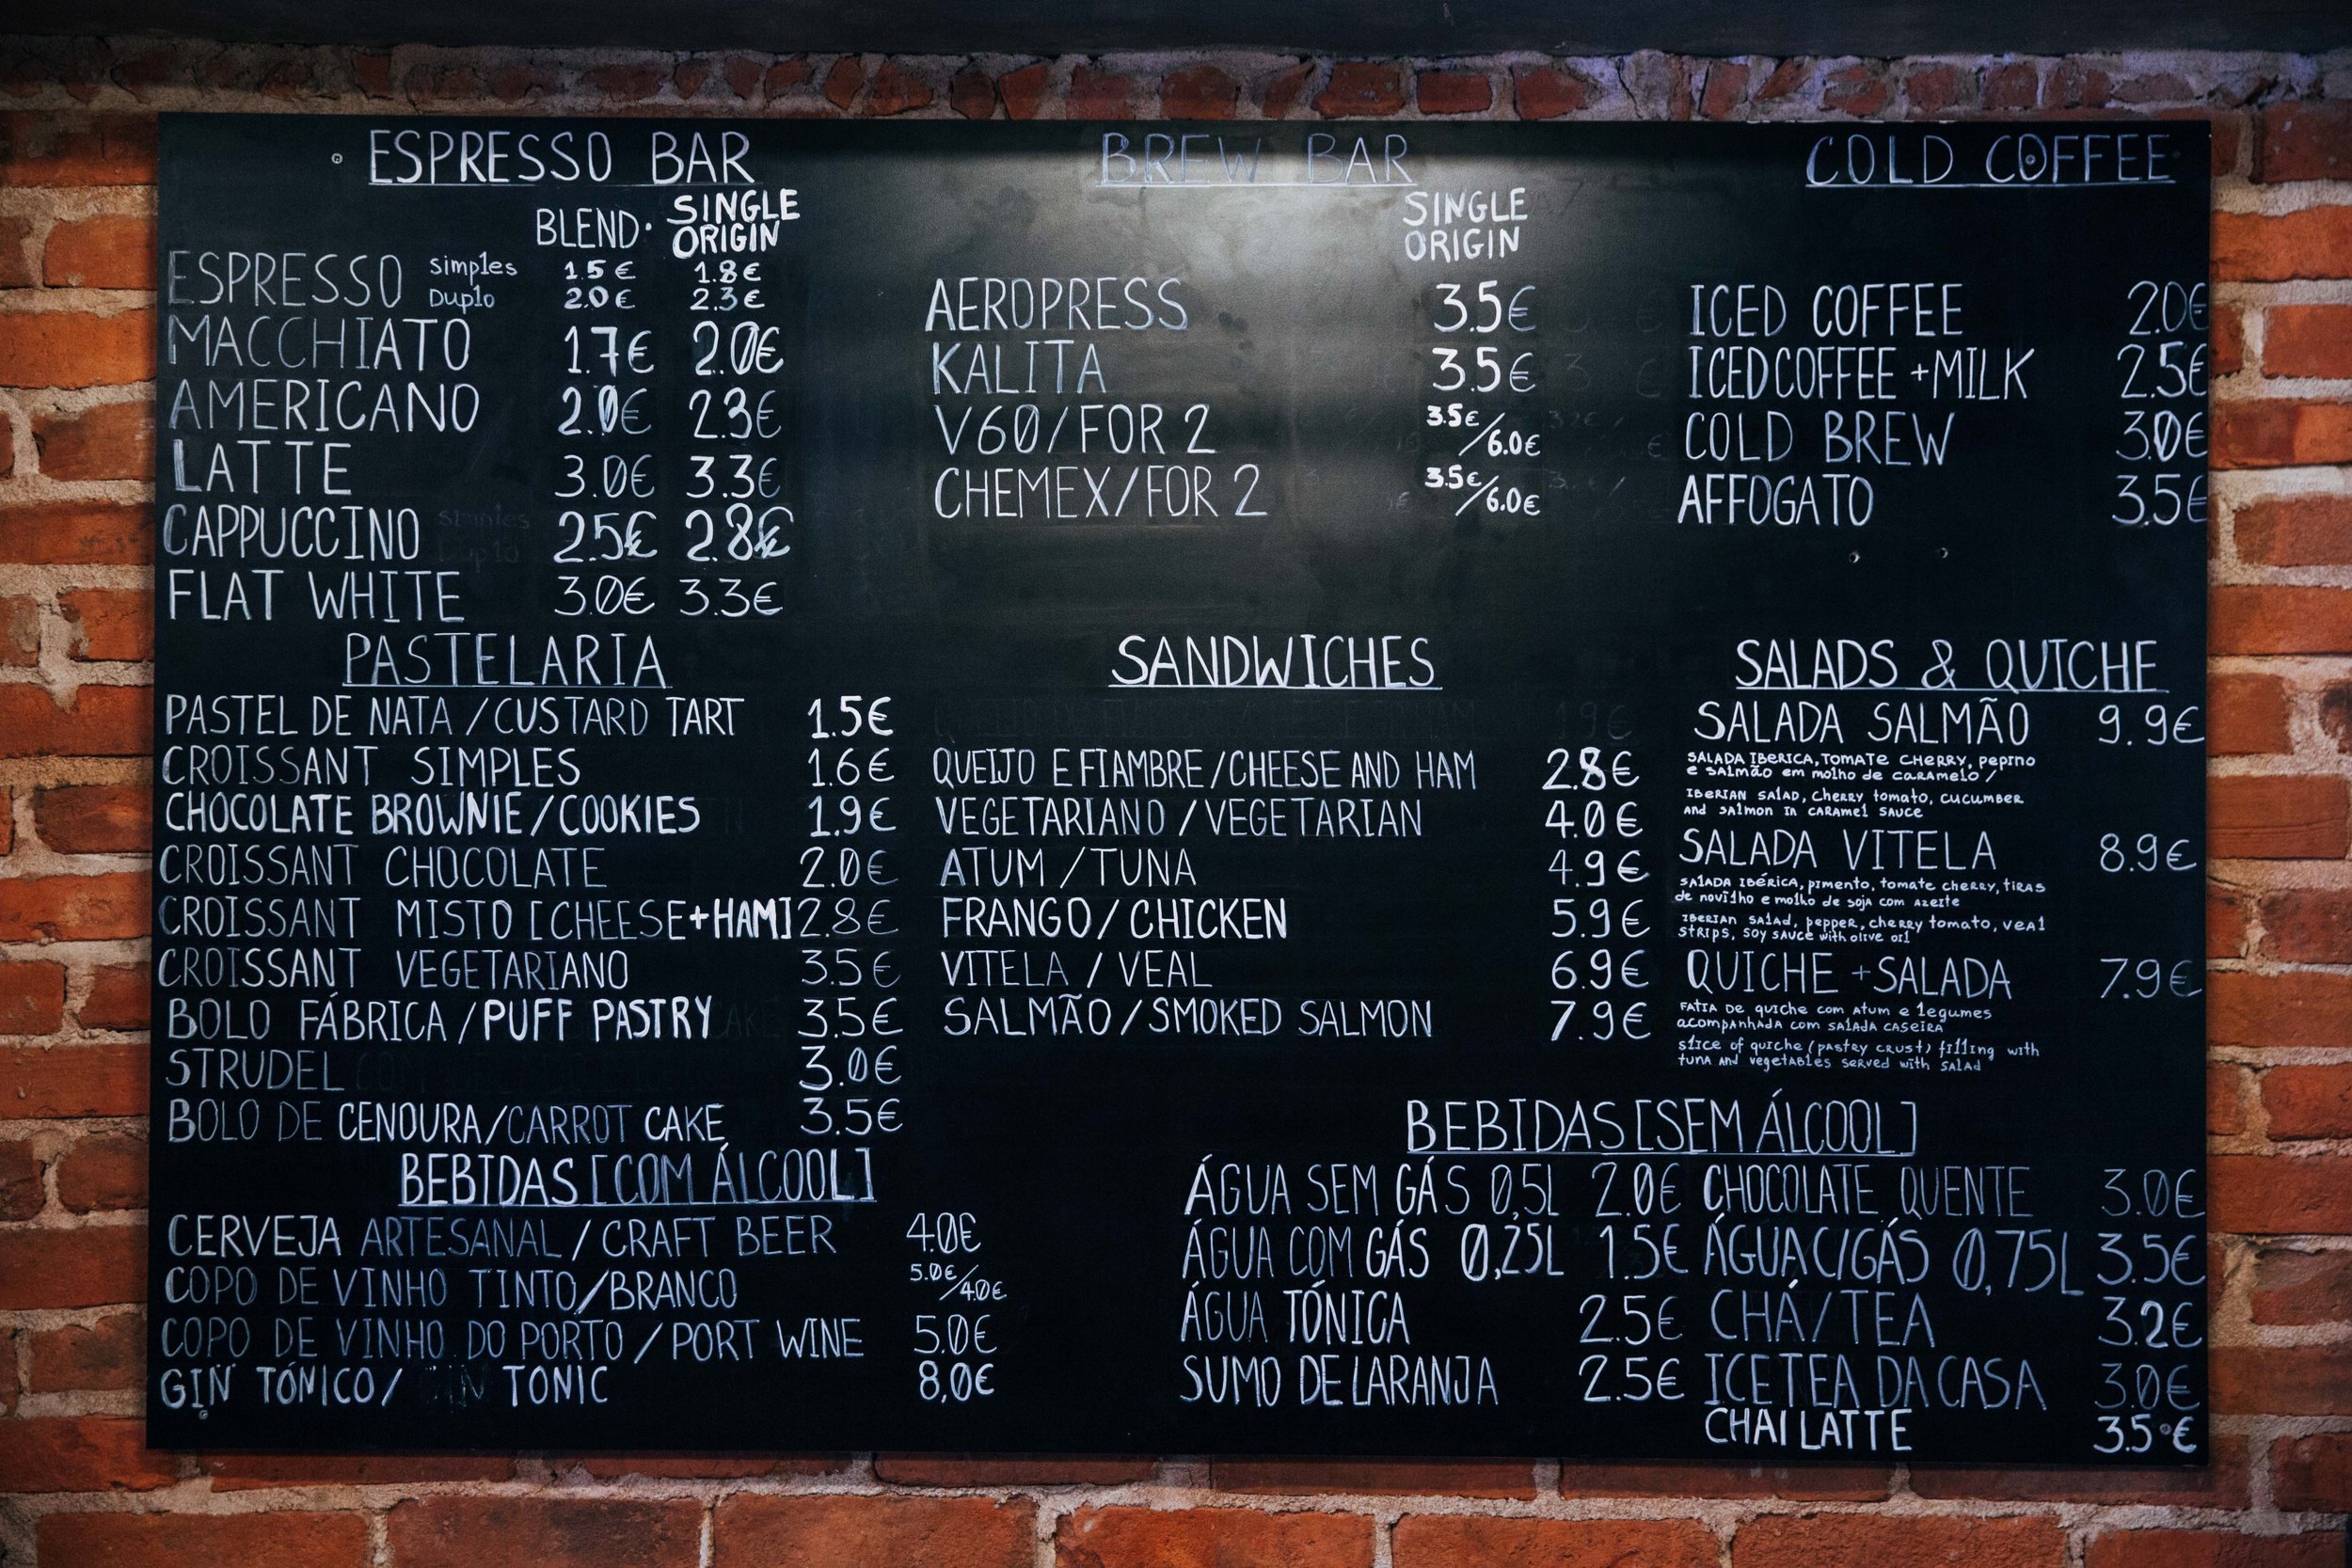 ESPRESSO BAR
BLEND· SINGLE ORIGIN
ESPRESSO simples 1.5€ 1.8€
Duplo 2.0€ 2.3€
MACCHIATO 1.7€ 2.0€
AMERICANO 2.0€ 2.3€
LATTE 3.0€ 3.3€
CAPPUCCINO 2.5€ 2.8€
FLAT WHITE 3.0€ 3.3€
BREW BAR
SINGLE
ORIGIN
AEROPRESS 3.5€
KALITA 3.5€
V60/FOR 2 3.5€/6.0€
CHEMEX/FOR 2 3.5€/6.0€
COLD COFFEE
ICED COFFEE 2.0€
ICED COFFEE +MILK 2.5€
COLD BREW 3.0€
AFFOGATO 3.5€
PASTELARIA
PASTEL DE NATA/CUSTARD TART 1.5€
CROISSANT SIMPLES 1.6€
CHOCOLATE BROWNIE/COOKIES 1.9€
CROISSANT CHOCOLATE 2.0€
CROISSANT MISTO [CHEESE+HAM] 2.8€
CROISSANT VEGETARIANO 3.5€
BOLO FÁBRICA/PUFF PASTRY 3.5€
STRUDEL 3.0€
BOLO DE CENOURA/CARROT CAKE 3.5€
SANDWICHES
QUEIJO E FIAMBRE/CHEESE AND HAM 2.8€
VEGETARIANO/VEGETARIAN 4.0€
ATUM/TUNA 4.9€
FRANGO/CHICKEN 5.9€
VITELA/VEAL 6.9€
SALMÃO/SMOKED SALMON 7.9€
SALADS & QUICHE
SALADA SALMÃO 9.9€
SALADA IBERICA, TOMATE CHERRY, pepino
e SALMÃO em molho de CARAMELO/
IBERIAN SALAD, Cherry tomato, CUCUMBER
AND SAlmon IN CARAMel SAUCE
SALADA VITELA 8.9€
SALADA IBÉRICA, pimento, tomate cherry, tiras
de novilho e molho de soja com azeite
IBERIAN SALAD, pepper, cherry tomato, veal
STRIPS, SOY SAUCE with olive oil
QUICHE +SALADA 7.9€
FATIA DE quiche com Atum e legumes
acompanhada com SALADA CASEIRA
slice of quiche (pastry crust) filling with
tuna and vegetables served with SALAD
BEBIDAS [COM ÁLCOOL]
CERVEJA ARTESANAL/CRAFT BEER 4.0€
COPO DE VINHO TINTO/BRANCO 5.0€/4.0€
COPO DE VINHO DO PORTO/PORT WINE 5.0€
GIN TÓNICO/GIN TONIC 8,0€
BEBIDAS [SEM ÁLCOOL]
ÁGUA SEM GÁS 0,5L 2.0€
ÁGUA COM GÁS 0,25L 1.5€
ÁGUA TÓNICA 2.5€
SUMO DE LARANJA 2.5€
CHOCOLATE QUENTE 3.0€
ÁGUA C/GÁS 0,75L 3.5€
CHÁ/TEA 3.2€
ICE TEA DA CASA 3.0€
CHAI LATTE 3.5€